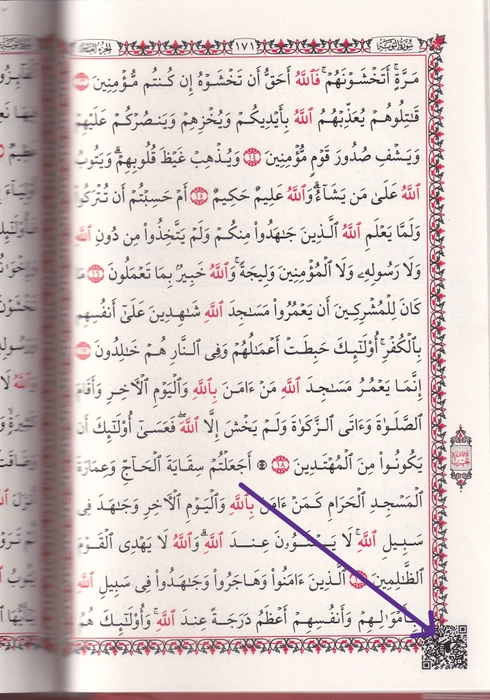 سورة التوبة
١٧١
مَرَّةٍ ۚ أَتَخْشَوْنَهُمْ ۚ فَٱللَّهُ أَحَقُّ أَن تَخْشَوْهُ إِن كُنتُم مُّؤْمِنِينَ
قَـٰتِلُوهُمْ يُعَذِّبْهُمُ ٱللَّهُ بِأَيْدِيكُمْ وَيُخْزِهِمْ وَيَنصُرْكُمْ عَلَيْهِمْ
وَيَشْفِ صُدُورَ قَوْمٍ مُّؤْمِنِينَ ١٤ وَيُذْهِبْ غَيْظَ قُلُوبِهِمْ ۗ وَيَتُوبُ
ٱللَّهُ عَلَىٰ مَن يَشَآءُ ۗ وَٱللَّهُ عَلِيمٌ حَكِيمٌ ١٥ أَمْ حَسِبْتُمْ أَن تُتْرَكُوا۟
وَلَمَّا يَعْلَمِ ٱللَّهُ ٱلَّذِينَ جَـٰهَدُوا۟ مِنكُمْ وَلَمْ يَتَّخِذُوا۟ مِن دُونِ ٱللَّهِ
وَلَا رَسُولِهِۦ وَلَا ٱلْمُؤْمِنِينَ وَلِيجَةً ۚ وَٱللَّهُ خَبِيرٌۢ بِمَا تَعْمَلُونَ ١٦ مَا
كَانَ لِلْمُشْرِكِينَ أَن يَعْمُرُوا۟ مَسَـٰجِدَ ٱللَّهِ شَـٰهِدِينَ عَلَىٰٓ أَنفُسِهِم
بِٱلْكُفْرِ ۚ أُو۟لَـٰٓئِكَ حَبِطَتْ أَعْمَـٰلُهُمْ وَفِى ٱلنَّارِ هُمْ خَـٰلِدُونَ
إِنَّمَا يَعْمُرُ مَسَـٰجِدَ ٱللَّهِ مَنْ ءَامَنَ بِٱللَّهِ وَٱلْيَوْمِ ٱلْـَٔاخِرِ وَأَقَامَ
ٱلصَّلَوٰةَ وَءَاتَى ٱلزَّكَوٰةَ وَلَمْ يَخْشَ إِلَّا ٱللَّهَ ۖ فَعَسَىٰٓ أُو۟لَـٰٓئِكَ أَن
يَكُونُوا۟ مِنَ ٱلْمُهْتَدِينَ ١٨ أَجَعَلْتُمْ سِقَايَةَ ٱلْحَآجِّ وَعِمَارَةَ
ٱلْمَسْجِدِ ٱلْحَرَامِ كَمَنْ ءَامَنَ بِٱللَّهِ وَٱلْيَوْمِ ٱلْـَٔاخِرِ وَجَـٰهَدَ فِى
سَبِيلِ ٱللَّهِ ۚ لَا يَسْتَوُۥنَ عِندَ ٱللَّهِ ۗ وَٱللَّهُ لَا يَهْدِى ٱلْقَوْمَ
ٱلظَّـٰلِمِينَ ٱلَّذِينَ ءَامَنُوا۟ وَهَاجَرُوا۟ وَجَـٰهَدُوا۟ فِى سَبِيلِ ٱللَّهِ
بِأَمْوَٰلِهِمْ وَأَنفُسِهِمْ أَعْظَمُ دَرَجَةً عِندَ ٱللَّهِ ۚ وَأُو۟لَـٰٓئِكَ هُمُ